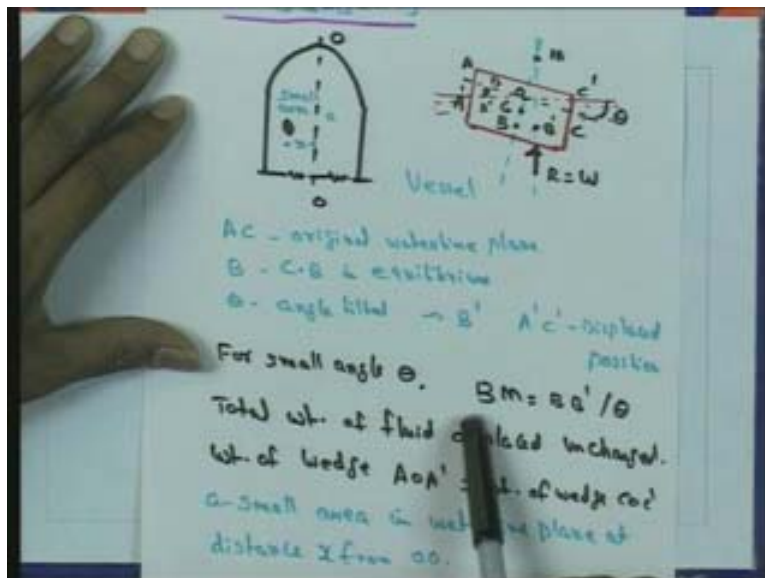 O
small
area
a
x
O
M
A
C'
A'
C
θ
B
B'
C
R=W
Vessel
AC - original waterline plane
B - C.B in equilibrium
θ - angle tilted → B' A'C' - Displaced
position
For small angle θ. BM = BB'/θ
Total wt. of fluid displaced unchanged.
wt. of wedge AOA' = wt. of wedge COC'
a - small area in waterline plane at
distance x from OO.